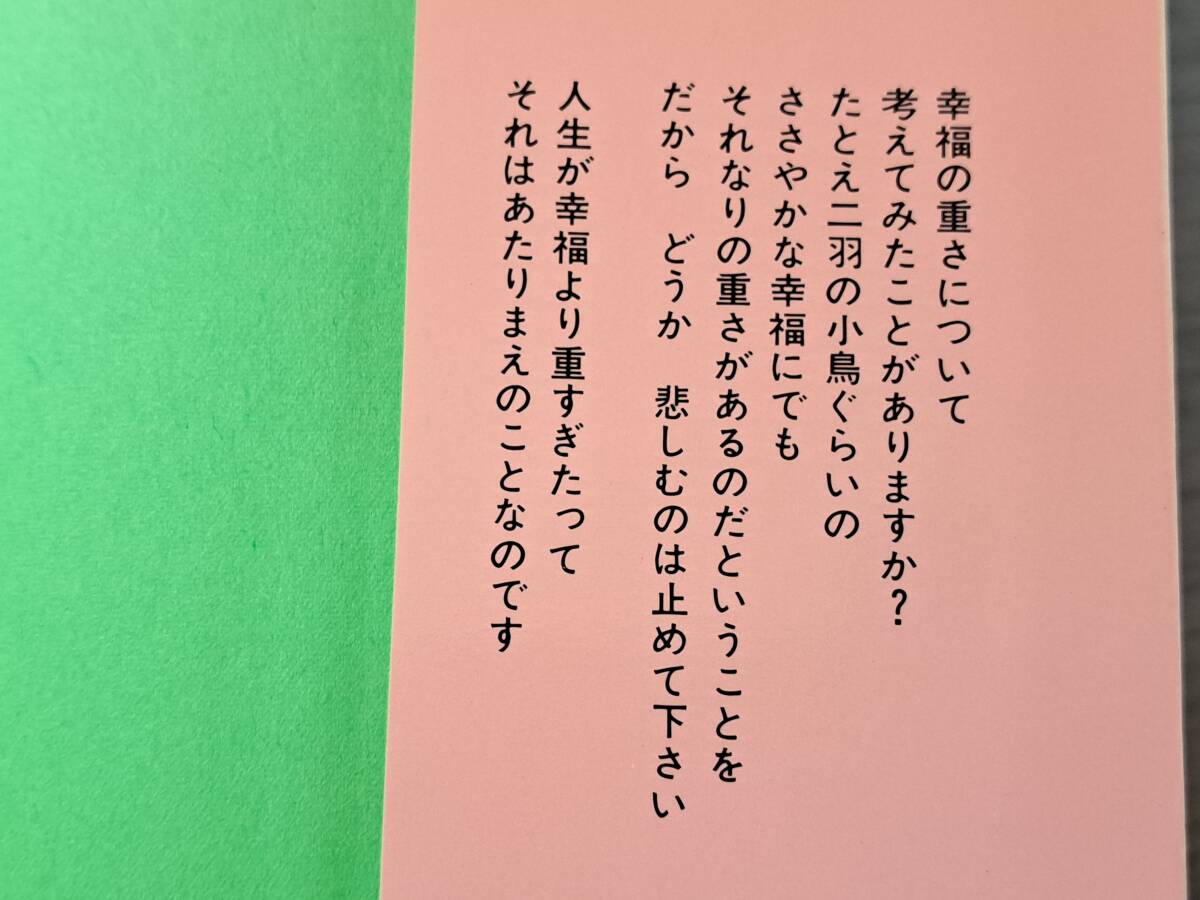 幸福の重さについて
考えてみたことがありますか?
たとえ二羽の小鳥ぐらいの
ささやかな幸福にでも
それなりの重さがあるのだということを
だから どうか 悲しむのは止めて下さい
人生が幸福より重すぎたって
それはあたりまえのことなのです